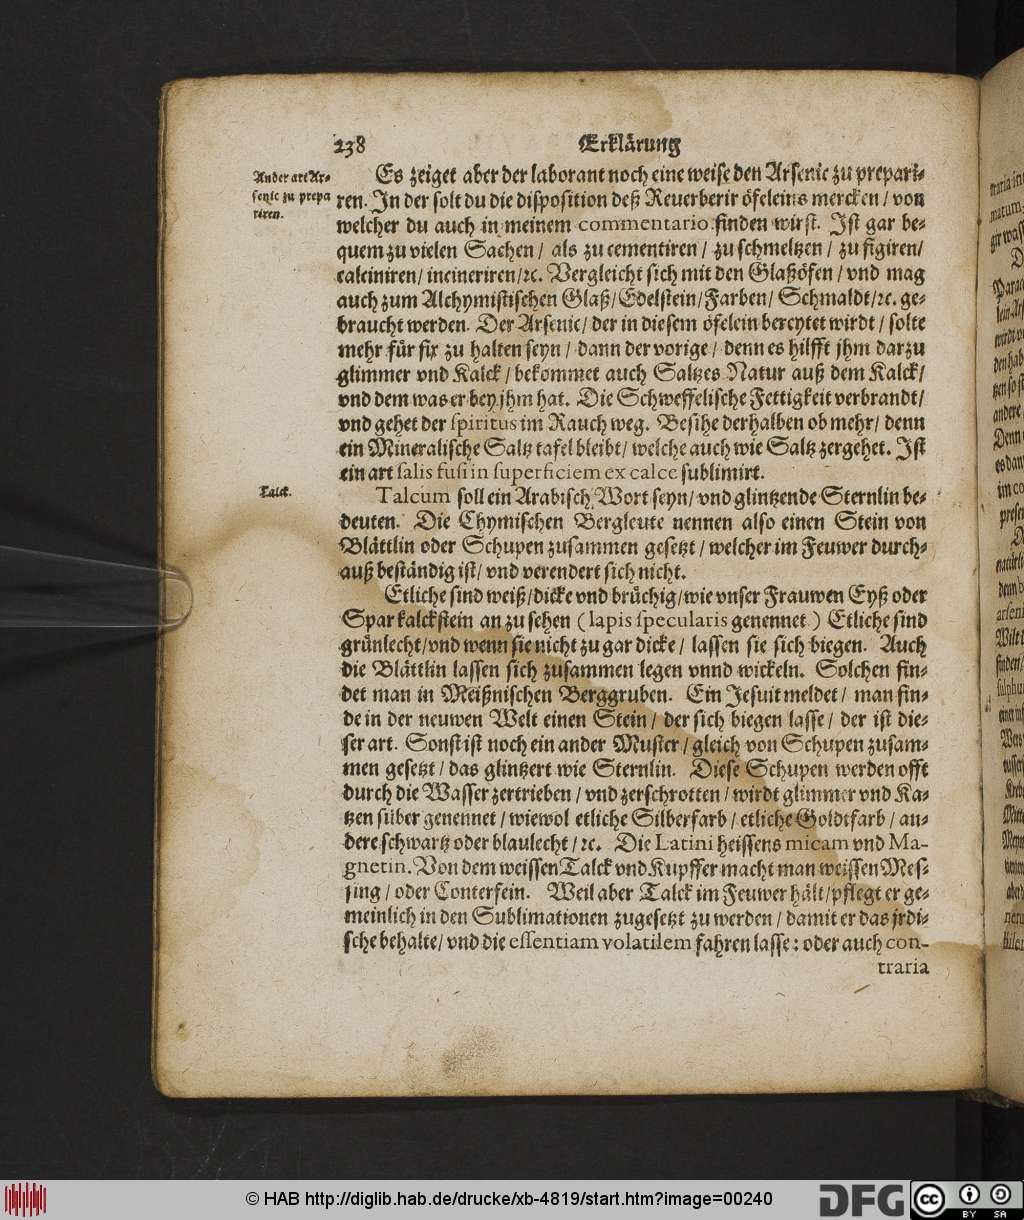 238 Erklärung
Ander art Ar-
senic zu prepa
riren.
Es zeiget aber der laborant noch eine weise den Arsenic zu prepari-
ren. In der solt du die disposition deß Reuerberir öfeleins mercken / von
welcher du auch in meinem commentario finden wirst. Ist gar be-
quem zu vielen Sachen / als zu cementiren / zu schmeltzen / zu figiren /
calciniren / incineriren / ꝛc. Vergleicht sich mit den Glaßöfen / vnd mag
auch zum Alchymistischen Glaß / Edelstein / Farben / Schmaldt / ꝛc. ge-
braucht werden. Der Arsenic / der in diesem öfelein bereytet wirdt / solte
mehr für fix zu halten seyn / dann der vorige / denn es hilfft jhm darzu
glimmer vnd Kalck / bekommet auch Saltzes Natur auß dem Kalck /
vnd dem was er bey jhm hat. Die Schweffelische Fettigkeit verbrandt /
vnd gehet der spiritus im Rauch weg. Besihe derhalben ob mehr / denn
ein Mineralische Saltz tafel bleibt / welche auch wie Saltz zergehet. Ist
ein art salis fusi in superficiem ex calce sublimirt.
Talck.
Talcum soll ein Arabisch Wort seyn / vnd glintzende Sternlin be-
deuten. Die Chymischen Bergleute nennen also einen Stein von
Blättlin oder Schupen zusammen gesetzt / welcher im Feuwer durch-
auß beständig ist / vnd verendert sich nicht.
Etliche sind weiß / dicke vnd brüchig / wie vnser Frauwen Eyß oder
Spar kalckstein an zu sehen ( lapis specularis genennet ) Etliche sind
grünlecht / vnd wenn sie nicht zu gar dicke / lassen sie sich biegen. Auch
die Blättlin lassen sich zusammen legen vnnd wickeln. Solchen fin-
det man in Meißnischen Berggruben. Ein Jesuit meldet / man fin-
de in der neuwen Welt einen Stein / der sich biegen lasse / der ist die-
ser art. Sonst ist noch ein ander Muster / gleich von Schupen zusam-
men gesetzt / das glintzert wie Sternlin. Diese Schupen werden offt
durch die Wasser zertrieben / vnd zerschrotten / wirdt glimmer vnd Ka-
tzen silber genennet / wiewol etliche Silberfarb / etliche Goldtfarb / an-
dere schwartz oder blaulecht / ꝛc. Die Latini heissens micam vnd Ma-
gnetin. Von dem weissen Talck vnd Kupffer macht man weissen Mes-
sing / oder Conterfein. Weil aber Talck im Feuwer hält / pflegt er ge-
meinlich in den Sublimationen zugesetzt zu werden / damit er das jrdi-
sche behalte / vnd die essentiam volatilem fahren lasse : oder auch con-
traria
© HAB http://diglib.hab.de/drucke/xb-4819/start.htm?image=00240
DFG
cc
BY SA